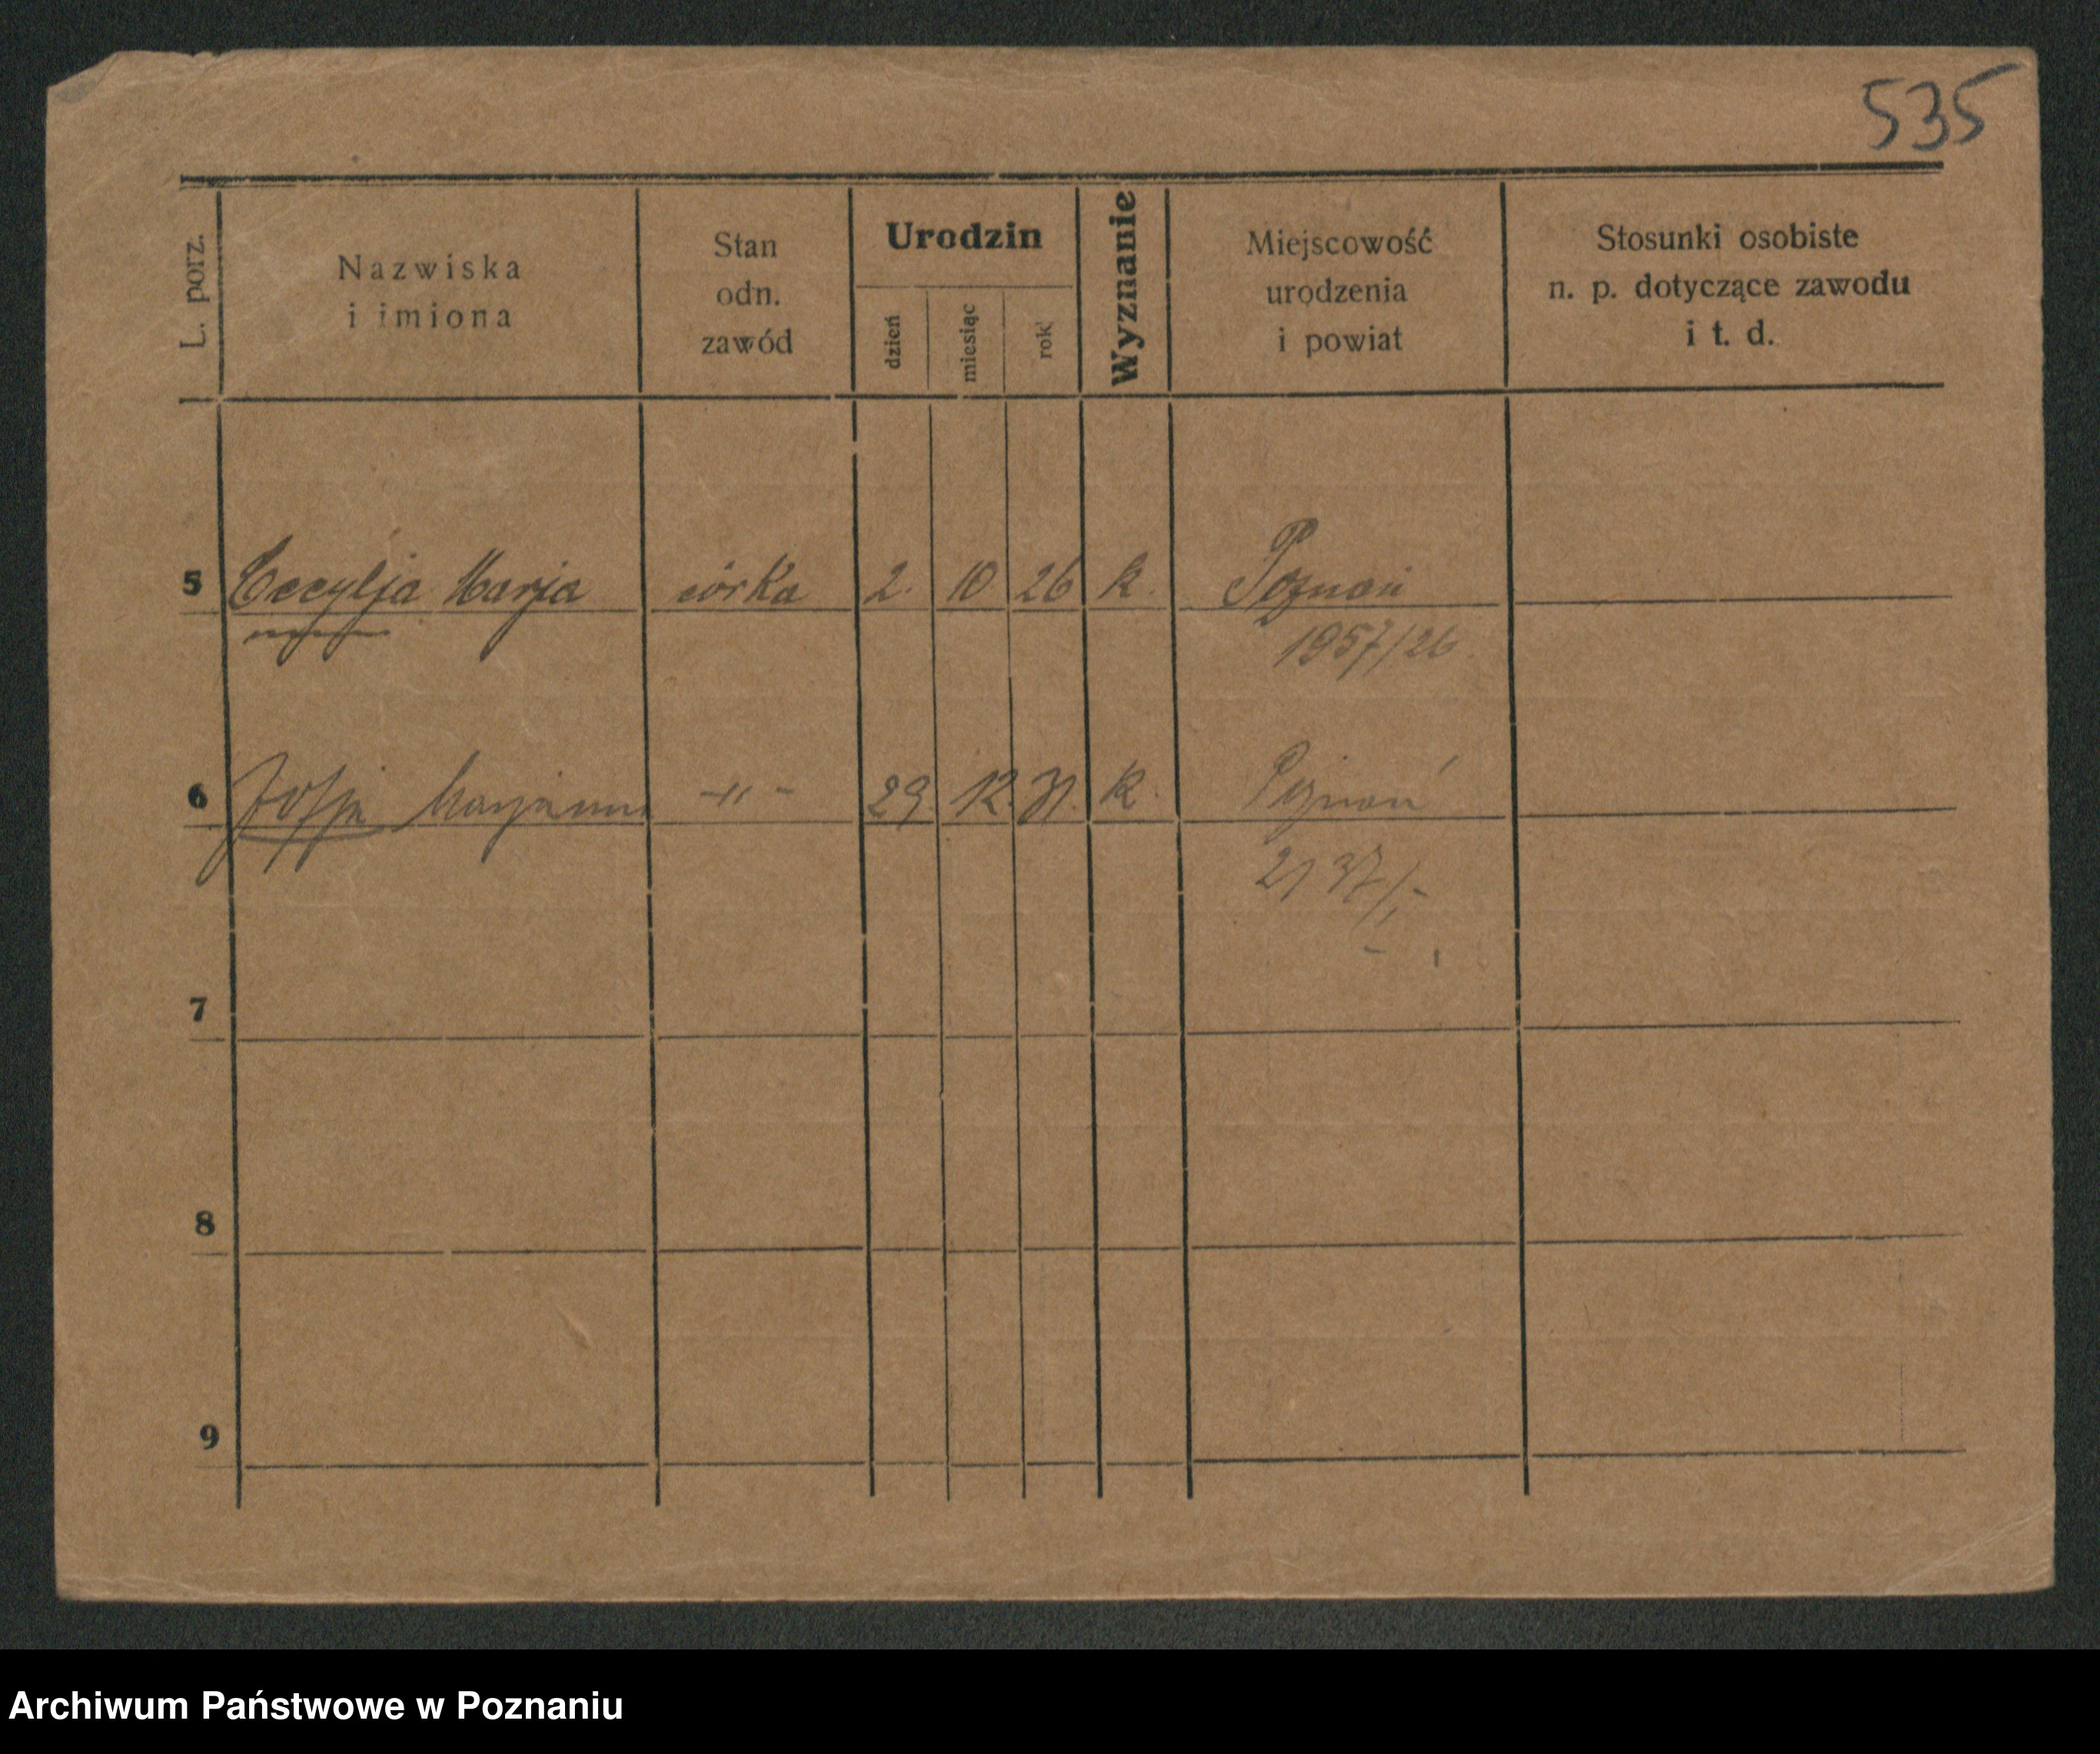 535
L. porz.
Nazwiska
i imiona
Stan
odn.
zawód
Urodzin
dzień
miesiąc
rok
Wyznanie
Miejscowość
urodzenia
i powiat
Stosunki osobiste
n. p. dotyczące zawodu
i t. d.
5 Cecylja Marja córka 2. 10 26 k. Poznań
1957/26
6 Zofja Marjanna -"- 29. 12. 31. k. Poznań
2137/
7
8
9
Archiwum Państwowe w Poznaniu